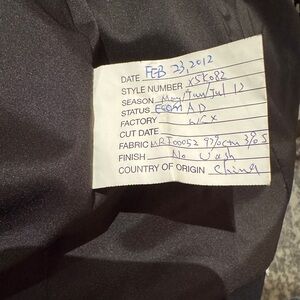 DATE FEB 23, 2012
STYLE NUMBER X5K082
SEASON May/Jun/Jul 12
STATUS AD
FACTORY WCX
CUT DATE
FABRIC 97%
FINISH No Wash
COUNTRY OF ORIGIN China